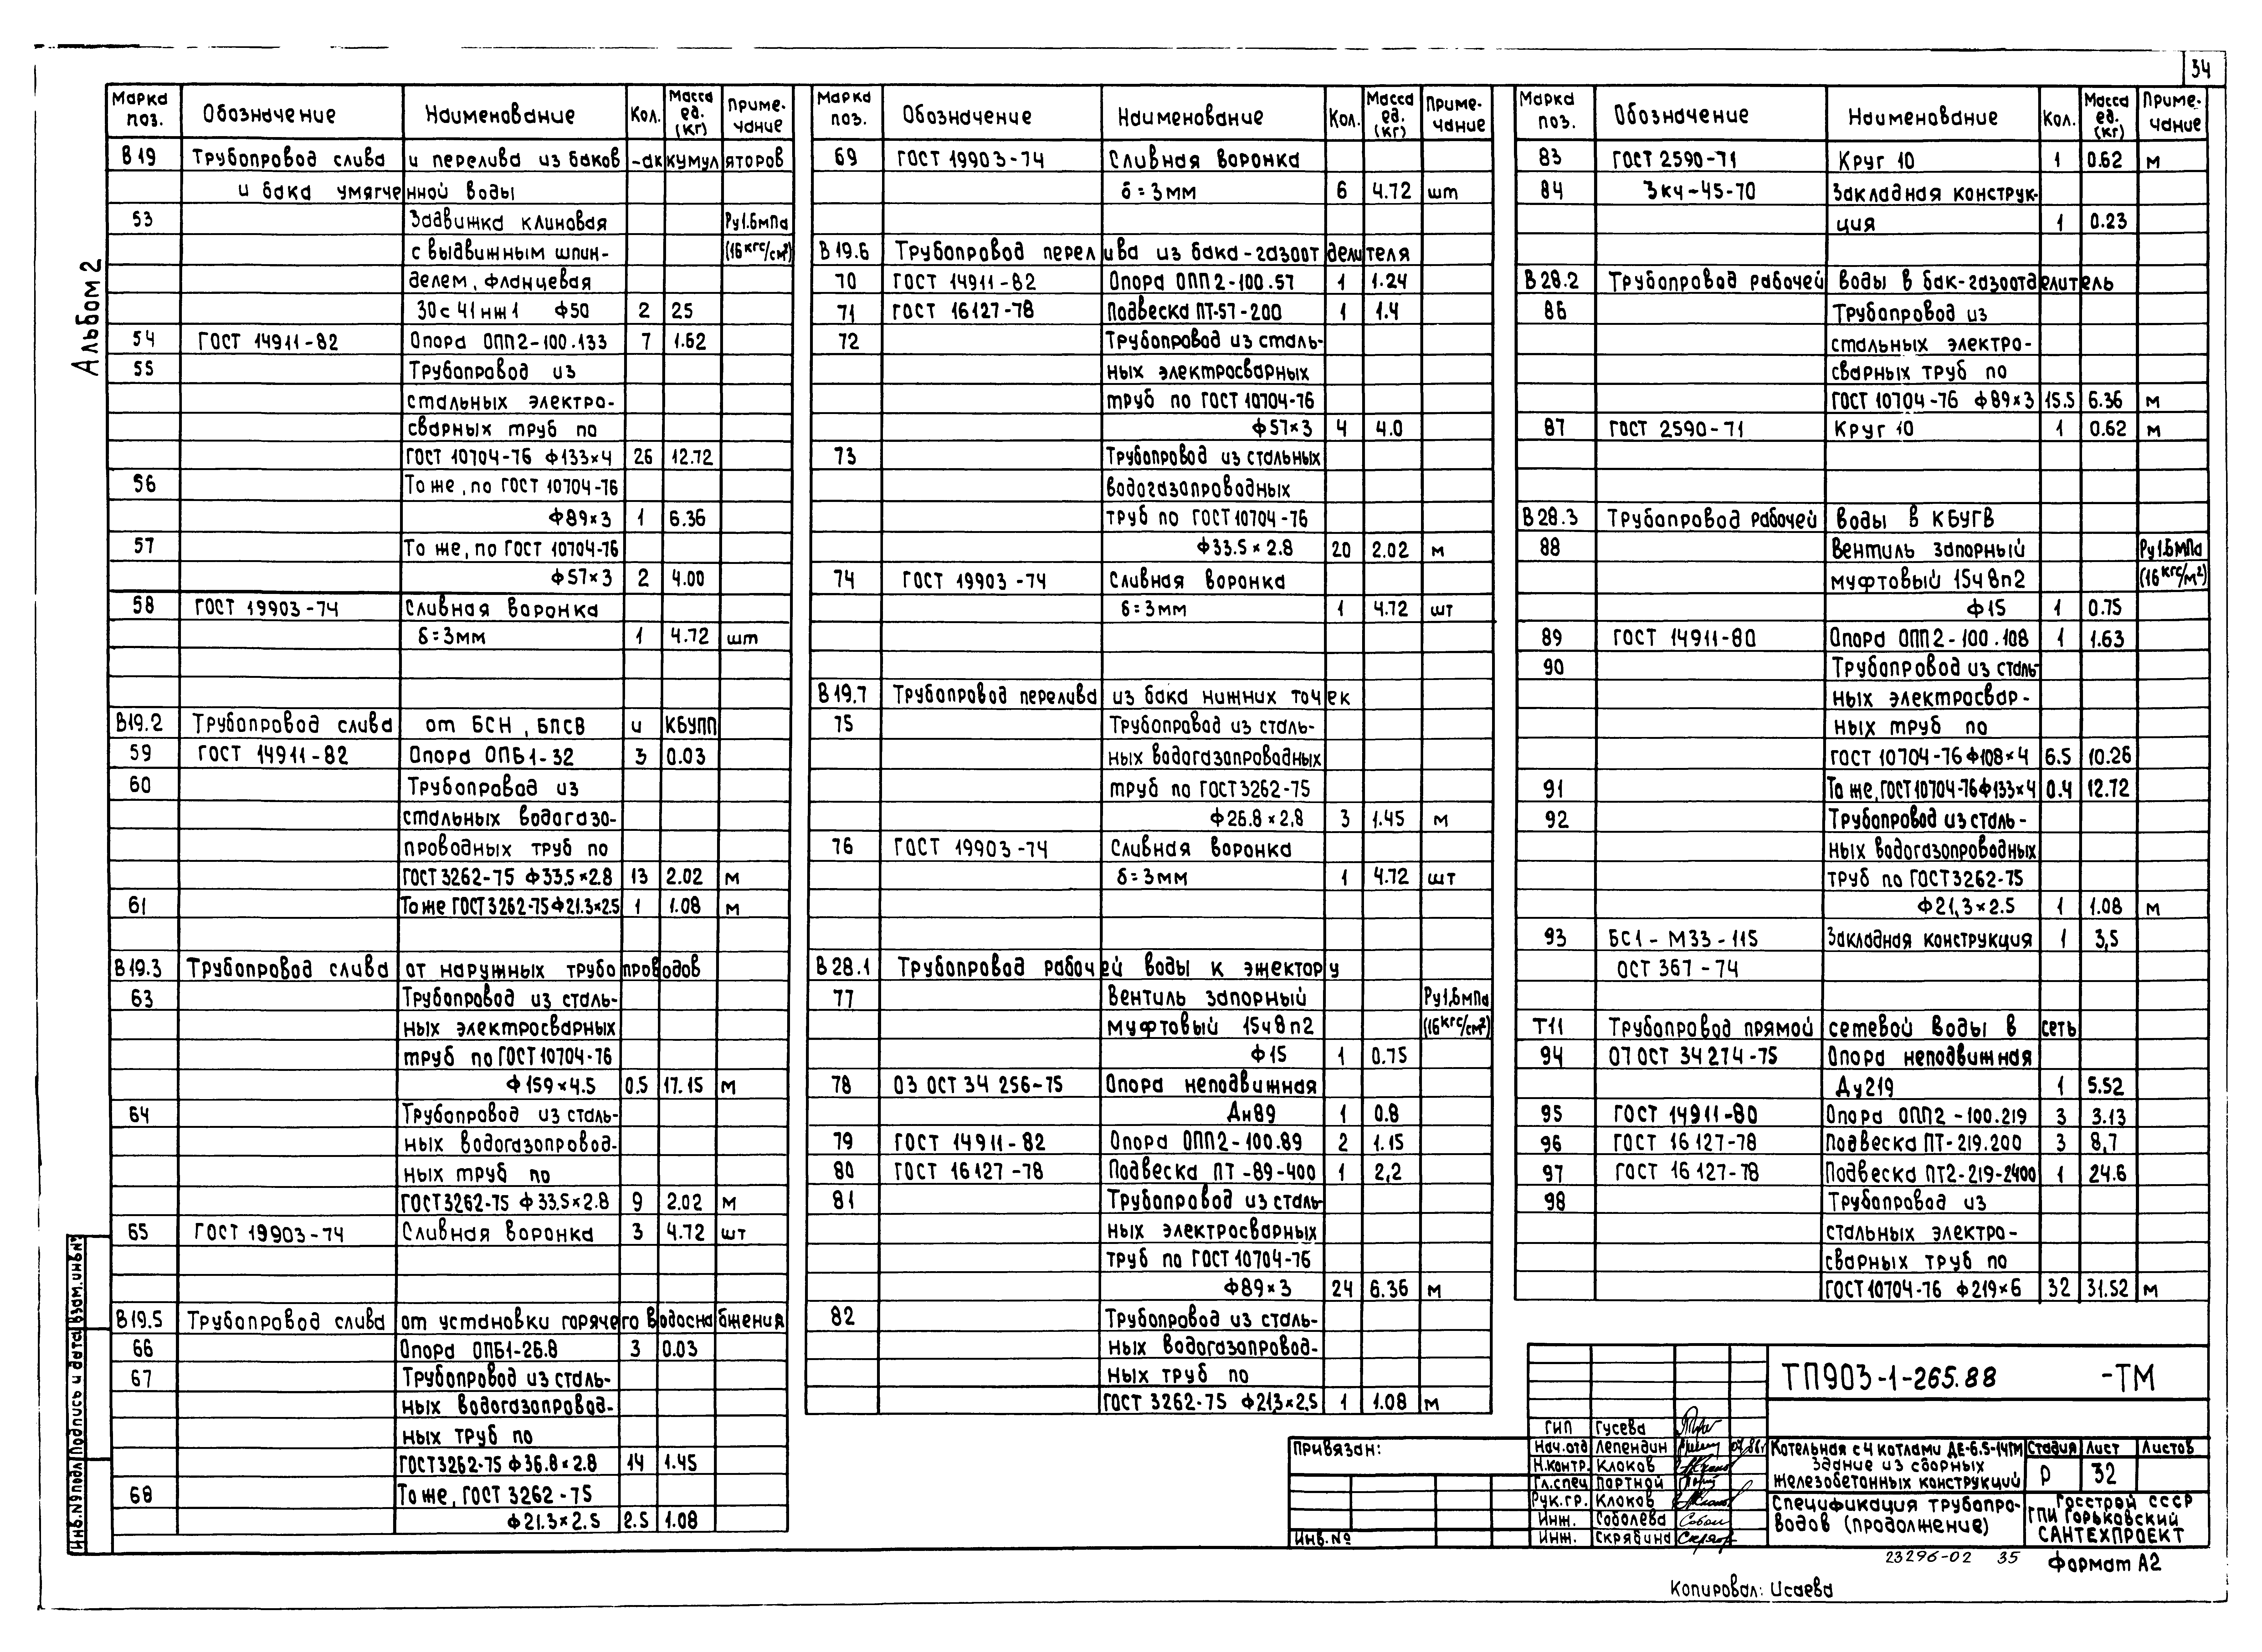 34
Альбом 2
Марка поз. Обозначение Наименование Кол. Масса ед. (кг) Приме-чание
В19 Трубопровод слива и перелива из баков-аккумуляторов
и бака умягченной воды
53 Задвижка клиновая Ру1.6мПа
с выдвижным шпин- (16кгс/см²)
делем, фланцевая
30с41нж1 ф50 2 25
54 ГОСТ 14911-82 Опора ОПП2-100.133 7 1.62
55 Трубопровод из
стальных электро-
сварных труб по
ГОСТ 10704-76 ф133×4 26 12.72
56 То же, по ГОСТ 10704-76
ф89×3 1 6.36
57 То же, по ГОСТ 10704-76
ф57×3 2 4.00
58 ГОСТ 19903-74 Сливная воронка
δ=3мм 1 4.72 шт
В19.2 Трубопровод слива от БСН, БПСВ и КБУПП
59 ГОСТ 14911-82 Опора ОПБ1-32 3 0.03
60 Трубопровод из
стальных водогазо-
проводных труб по
ГОСТ 3262-75 ф33,5×2.8 13 2.02 м
61 То же ГОСТ 3262-75 ф21.3×2.5 1 1.08 м
В19.3 Трубопровод слива от наружных трубопроводов
63 Трубопровод из сталь-
ных электросварных
труб по ГОСТ 10704-76
ф159×4.5 0.5 17.15 м
64 Трубопровод из сталь-
ных водогазопровод-
ных труб по
ГОСТ 3262-75 ф33.5×2.8 9 2.02 м
65 ГОСТ 19903-74 Сливная воронка 3 4.72 шт
В19.5 Трубопровод слива от установки горячего водоснабжения
66 Опора ОПБ1-26.8 3 0.03
67 Трубопровод из сталь-
ных водогазопровод-
ных труб по
ГОСТ 3262-75 ф36.8×2.8 14 1.45
68 То же, ГОСТ 3262-75
ф21.3×2.5 2.5 1.08
Марка поз. Обозначение Наименование Кол. Масса ед. (кг) Приме-чание
69 ГОСТ 19903-74 Сливная воронка
δ=3мм 6 4.72 шт
В19.6 Трубопровод перелива из бака-газоотделителя
70 ГОСТ 14911-82 Опора ОПП2-100.57 1 1.24
71 ГОСТ 16127-78 Подвеска ПТ-57-200 1 1.4
72 Трубопровод из сталь-
ных электросварных
труб по ГОСТ 10704-76
ф57×3 4 4.0
73 Трубопровод из стальных
водогазопроводных
труб по ГОСТ 10704-76
ф33.5×2.8 20 2.02 м
74 ГОСТ 19903-74 Сливная воронка
δ=3мм 1 4.72 шт
В19.7 Трубопровод перелива из бака нижних точек
75 Трубопровод из сталь-
ных водогазопроводных
труб по ГОСТ 3262-75
ф26.8×2,8 3 1.45 м
76 ГОСТ 19903-74 Сливная воронка
δ=3мм 1 4.72 шт
В28.1 Трубопровод рабочей воды к эжектору
77 Вентиль запорный Ру1,6мПа
муфтовый 15ч8п2 (16кгс/см²)
ф15 1 0.75
78 03 ОСТ 34 256-75 Опора неподвижная
Дн89 1 0.8
79 ГОСТ 14911-82 Опора ОПП2-100.89 2 1.15
80 ГОСТ 16127-78 Подвеска ПТ-89-400 1 2,2
81 Трубопровод из сталь-
ных электросварных
труб по ГОСТ 10704-76
ф89×3 24 6.36 м
82 Трубопровод из сталь-
ных водогазопровод-
ных труб по
ГОСТ 3262-75 ф21,3×2,5 1 1.08 м
Марка поз. Обозначение Наименование Кол. Масса ед. (кг) Приме-чание
83 ГОСТ 2590-71 Круг 10 1 0.62 м
84 ЗК4-45-70 Закладная конструк-
ция 1 0.23
В28.2 Трубопровод рабочей воды в бак-газоотделитель
86 Трубопровод из
стальных электро-
сварных труб по
ГОСТ 10704-76 ф89×3 15.5 6.36 м
87 ГОСТ 2590-71 Круг 10 1 0.62 м
В28.3 Трубопровод рабочей воды в КБУГВ
88 Вентиль запорный Ру1.6мПа
муфтовый 15ч8п2 (16кгс/м²)
ф15 1 0.75
89 ГОСТ 14911-80 Опора ОПП2-100.108 1 1.63
90 Трубопровод из сталь-
ных электросвар-
ных труб по
ГОСТ 10704-76 ф108×4 6.5 10.26
91 То же, ГОСТ 10704-76 ф133×4 0.4 12.72
92 Трубопровод из сталь-
ных водогазопроводных
труб по ГОСТ 3262-75
ф21,3×2.5 1 1.08 м
93 БС1-М33-115 Закладная конструкция 1 3,5
ОСТ 367-74
Т11 Трубопровод прямой сетевой воды в сеть
94 07 ОСТ 34 274-75 Опора неподвижная
Ду219 1 5.52
95 ГОСТ 14911-80 Опора ОПП2-100.219 3 3.13
96 ГОСТ 16127-78 Подвеска ПТ-219.200 3 8,7
97 ГОСТ 16127-78 Подвеска ПТ2-219-2400 1 24.6
98 Трубопровод из
стальных электро-
сварных труб по
ГОСТ 10704-76 ф219×6 32 31.52 м
Инв.№подл Подпись и дата Взам.инв№
Привязан:
Инв.№
ТП903-1-265.88 -ТМ
ГИП Гусева
Нач.отд Лепендин
Н.контр. Клоков
Гл.спец Портной
Рук.гр. Клоков
Инж. Соболева
Инж. Скрябина
Котельная с 4 котлами ДЕ-6.5-14ГМ
здание из сборных
железобетонных конструкций
Стадия Лист Листов
Р 32
Спецификация трубопро-
водов (продолжение)
Госстрой СССР
ГПИ Горьковский
САНТЕХПРОЕКТ
23296-02 35
Формат А2
Копировал: Исаева